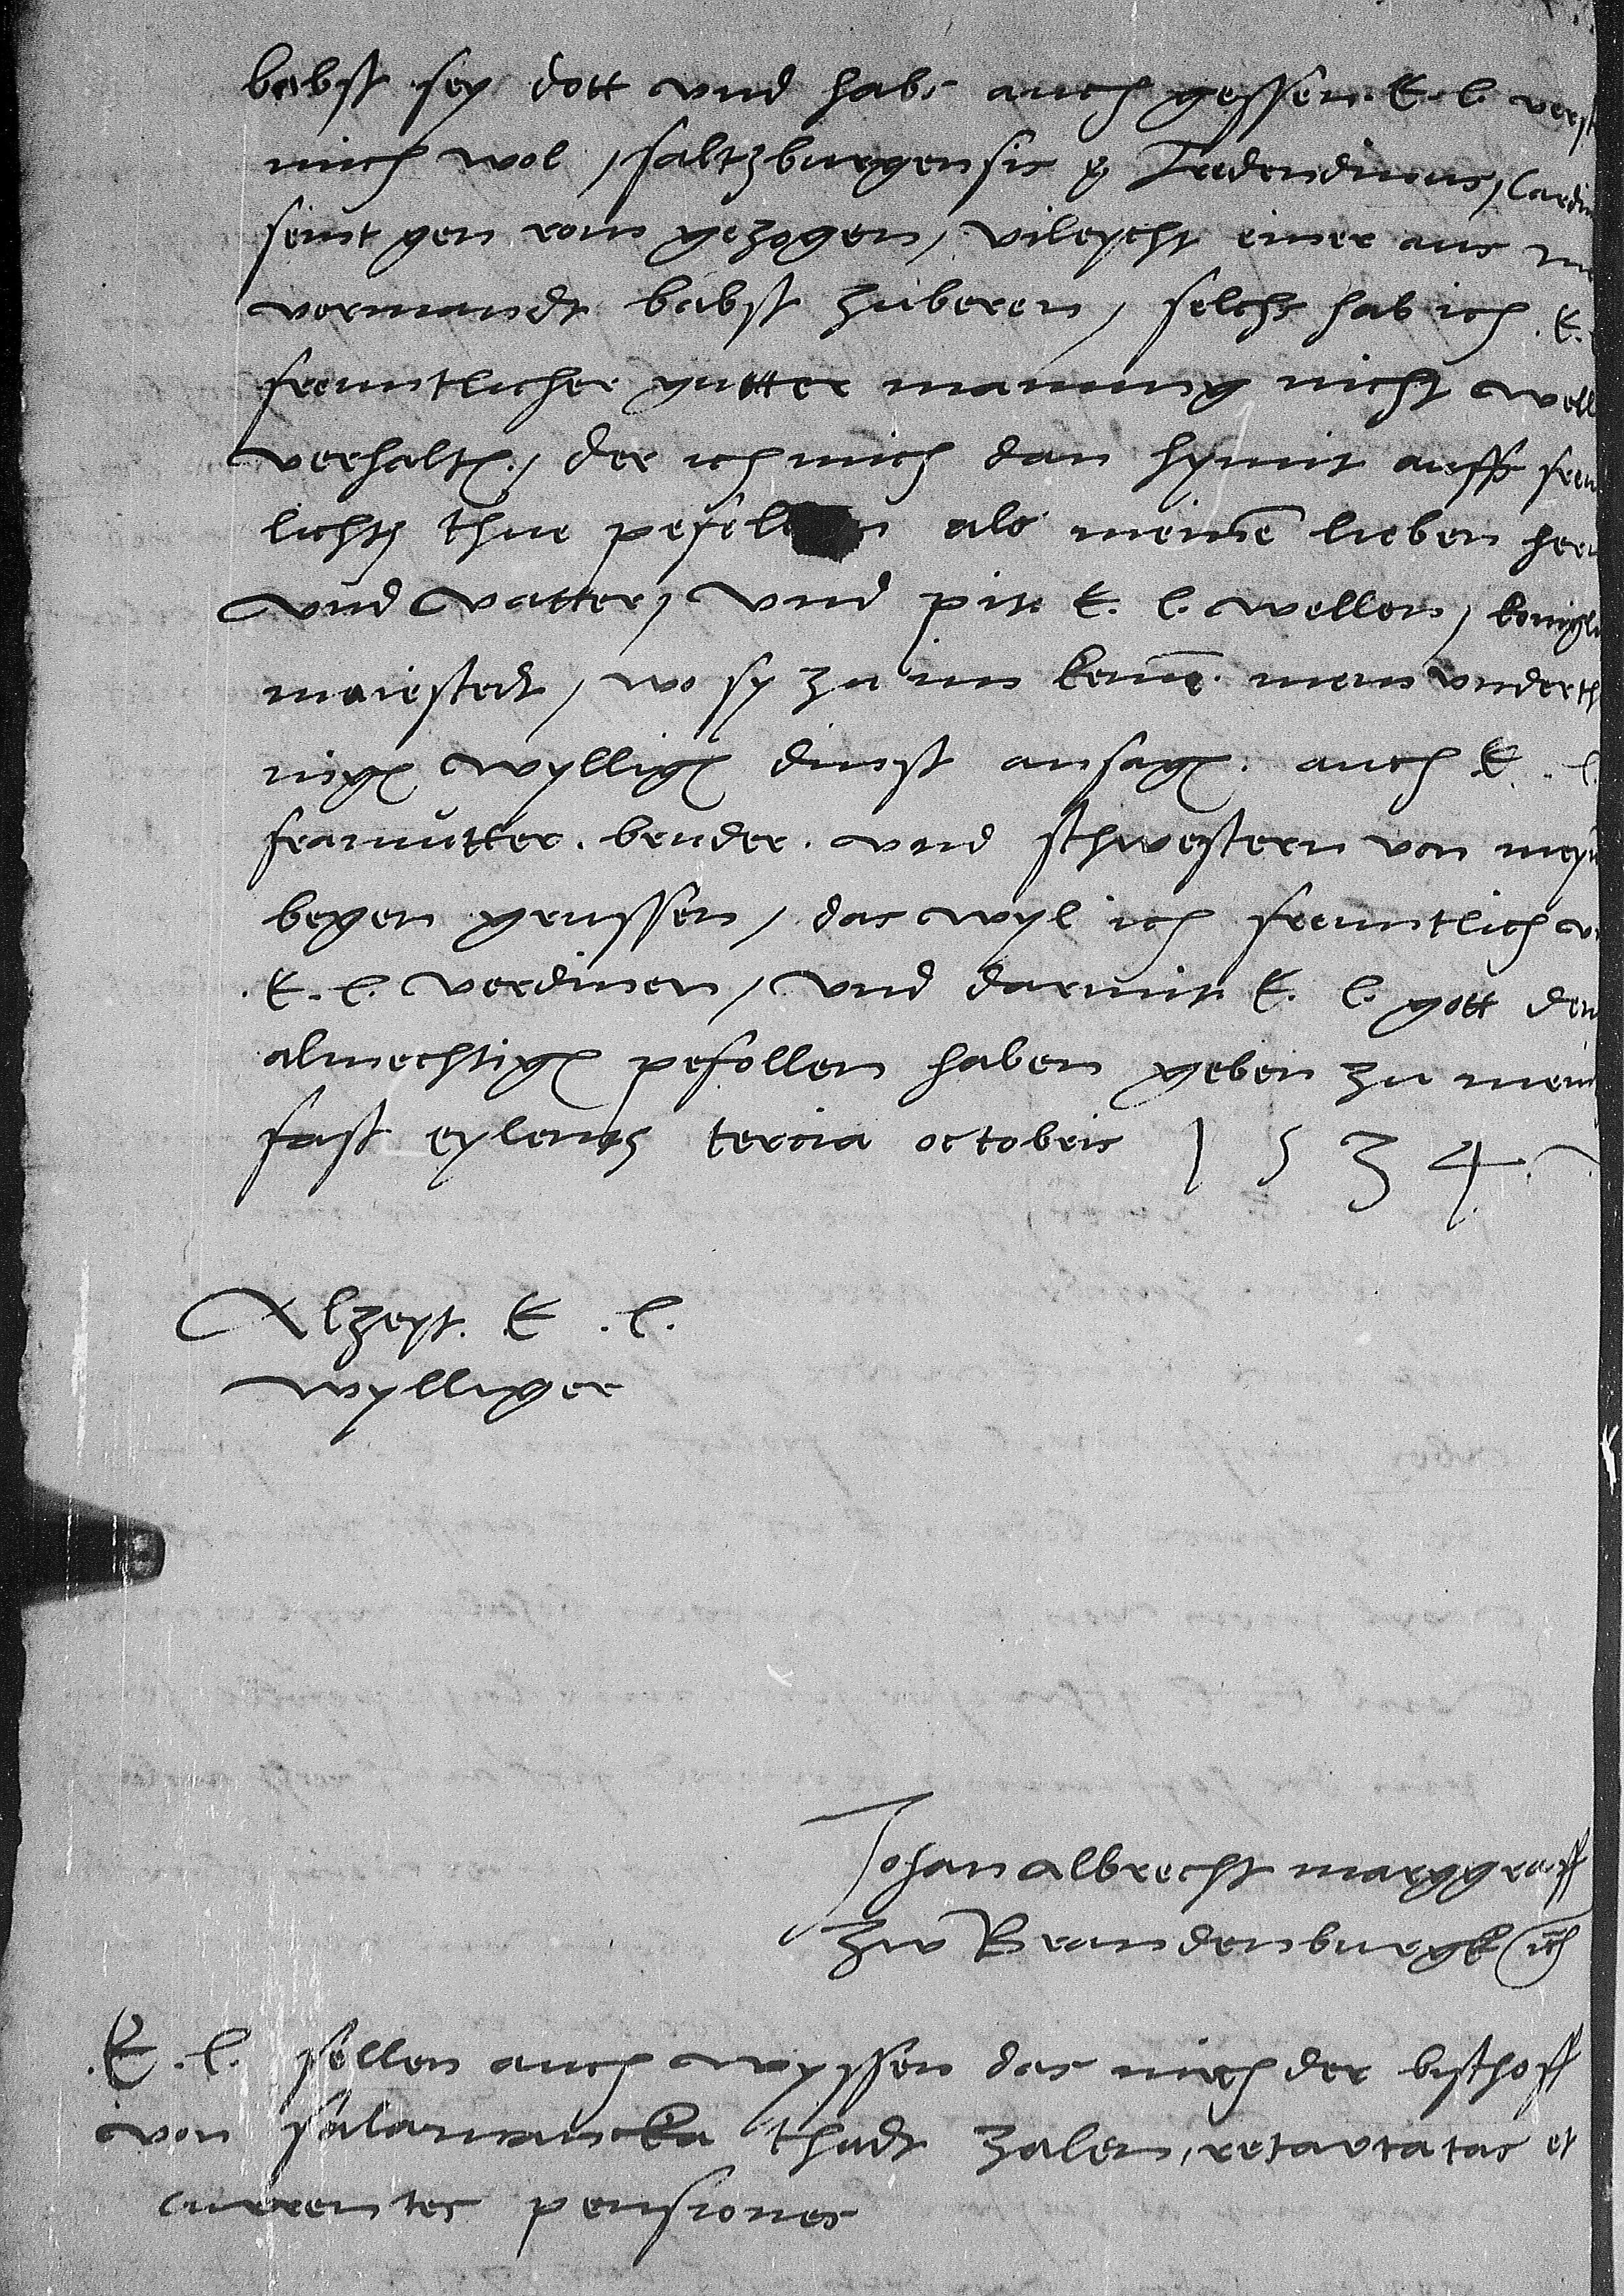 babst sey dott vnd habs auch gessen. E. l. verst
mich wol / saltzburgensis & Tredendinus / Cardin
seint gen rom gezogen / vileycht einer aus
vormandt babst zu
 / solchs hab ich . E.
freuntlicher gutter manung nicht woll
verhalten / der ich mich dan hymit auffs freu
lichst thue pefelen als meinem lieben hern
vnd vatter / vnd pitt E. l. wellen / konigli
maiestedt / wo sy zu im keme. mein vnderth
nigen wylligen dinst ansagen. auch E. l.
fraumutter. bruder. vnd schwestern von mey
wegen grussen / das wyl ich freuntlich v
. E. l. verdinen / vnd darmit E. l. gott dem
almechtigen pefollen haben geben zu
fast eylents tercia octobris 1534.
Alzeyt. E. l.
wylliger
Johan albrecht marggraff
zw Brandenburgk
. E. l. sellen auch wyssen das mich der byschoff
von salamancka thudt zalen, retartatas et
currentes pensiones